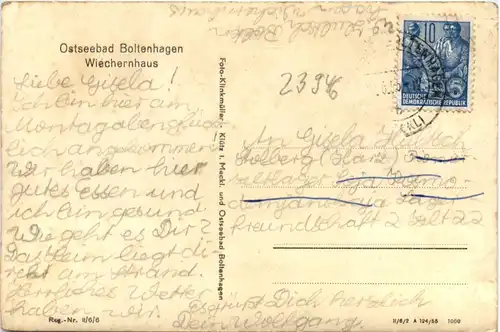 Ostseebad Boltenhagen
Wiechernhaus
Liebe Gisela!
Ich bin hier am
Montagabend glück-
lich angekommen.
Wir haben hier
gutes Essen und
ich bin gesund.
Wie geht es Dir?
Das Heim liegt di-
rekt am Strand.
Herrliches Wetter
haben wir.
Es grüßt Dich herzlich
Dein Wolfgang.
Reg.-Nr. II/6/6
Foto-Klinkmüller · Klütz i. Meckl. und Ostseebad Boltenhagen
2394
10
DEUTSCHE
DEMOKRATISCHE REPUBLIK
An Gisela
Stolberg (Harz)
Zeltlager
Freundschaft 2 Zelt 22
II/6/2 A 124/55 1009